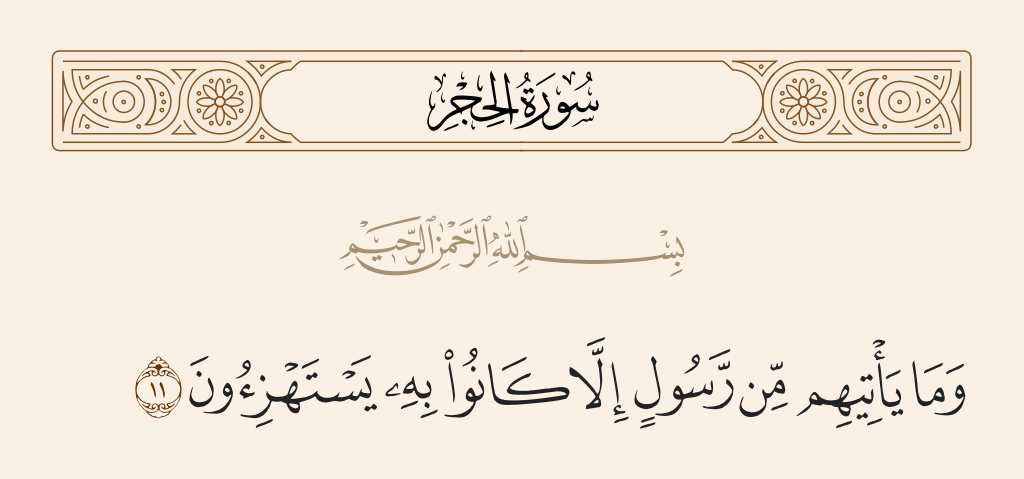 سُورَةُ الحِجْرِ
بِسْمِ ٱللَّهِ ٱلرَّحْمَٰنِ ٱلرَّحِيمِ
وَمَا يَأْتِيهِم مِّن رَّسُولٍ إِلَّا كَانُوا۟ بِهِۦ يَسْتَهْزِءُونَ ١١